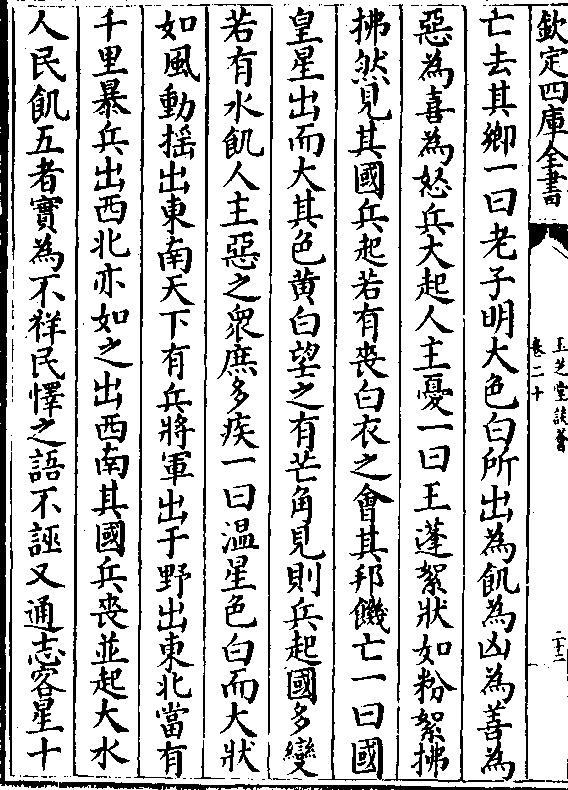 欽定四庫全書
玉芝堂談薈
卷二十
二十二
亡去其鄉一曰老子明大色白所出為飢為凶為善為
惡為喜為怒兵大起人主憂一曰王蓬絮狀如粉絮拂
拂然見其國兵起若有喪白衣之會其邦饑亡一曰國
皇星出而大其色黄白望之有芒角見則兵起國多變
若有水飢人主惡之衆庶多疾一曰温星色白而大狀
如風動揺出東南天下有兵將軍出于野出東北當有
千里暴兵出西北亦如之出西南其國兵喪並起大水
人民飢五者實為不祥民懌之語不誣又通志客星十